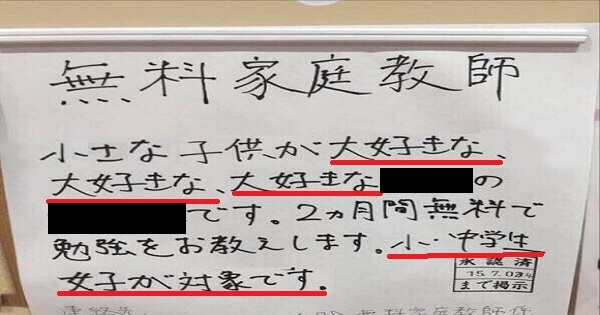 無料家庭教師
小さな子供が大好きな、
大好きな、大好きな の
です。2ヵ月間無料で
勉強をお教えします。小・中学生
女子が対象です。
承認済
15.7.03
まで掲示